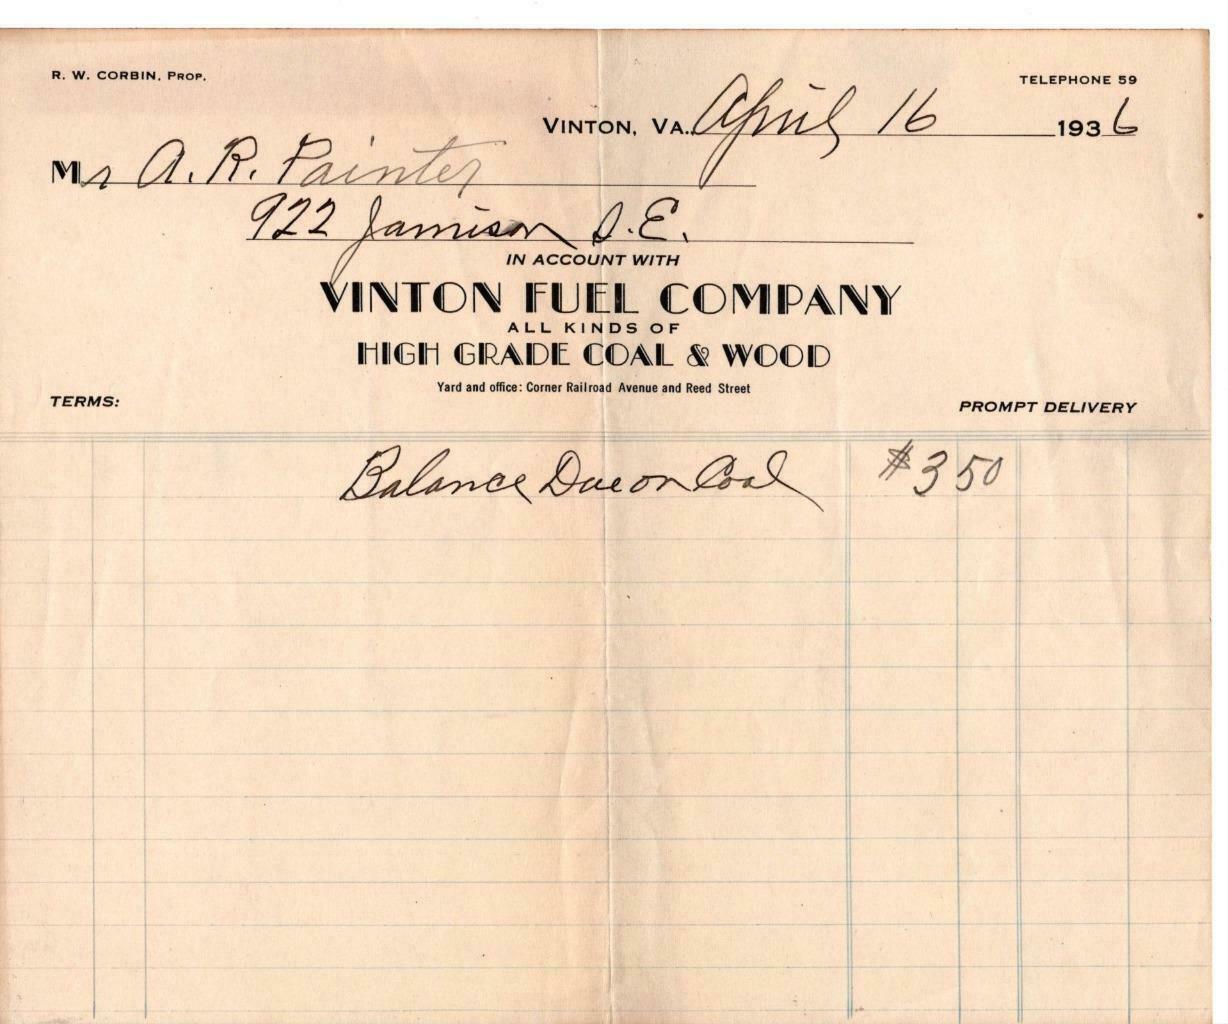 R. W. CORBIN, PROP.
TELEPHONE 59
VINTON, VA. April 16 1936
Mr A. R. Painter
922 Jamison S.E.
IN ACCOUNT WITH
VINTON FUEL COMPANY
ALL KINDS OF
HIGH GRADE COAL & WOOD
Yard and office: Corner Railroad Avenue and Reed Street
TERMS:
PROMPT DELIVERY
Balance Due on Coal $3 50